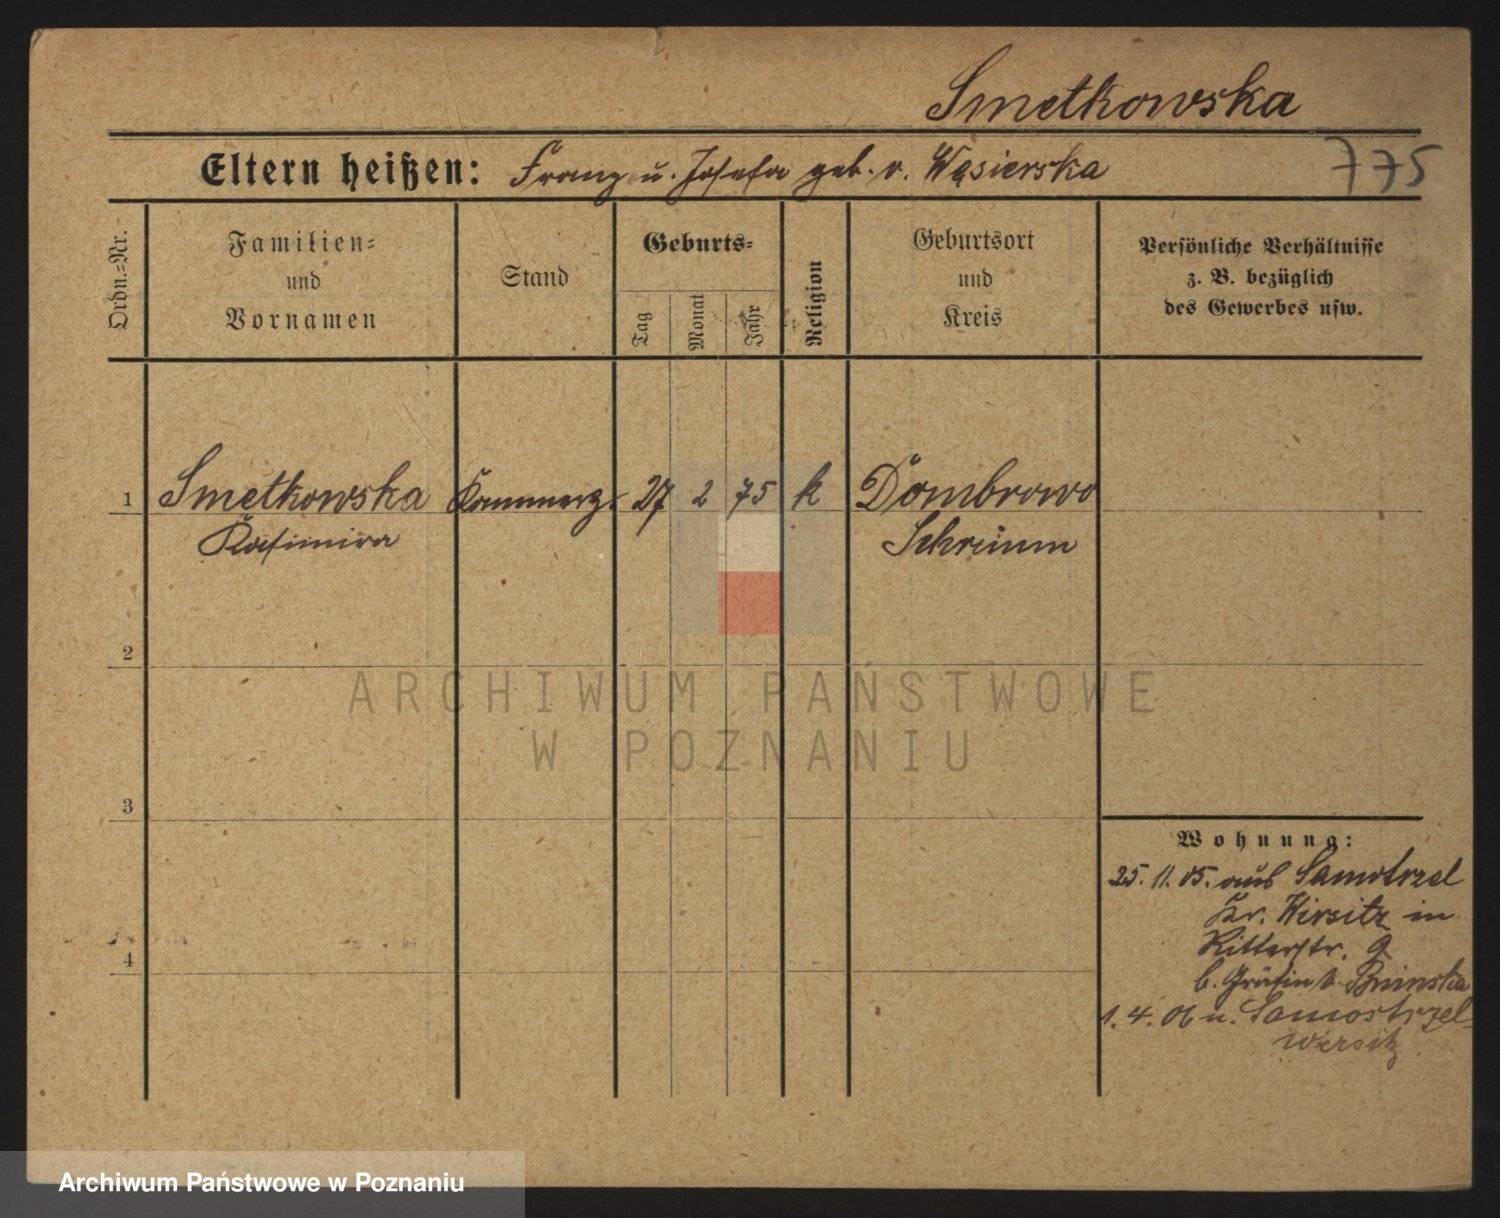 Smetkowska
Eltern heißen: Franz u. Josefa geb. v. Wąsierska 775
Ordn.-Nr.
Familien-
und
Vornamen
Stand
Geburts-
Tag
Monat
Jahr
Religion
Geburtsort
und
Kreis
Persönliche Verhältnisse
z. B. bezüglich
des Gewerbes usw.
1 Smetkowska Kammerz. 27 2 75 k Dombrowo
Kasimira Schrimm
2
ARCHIWUM PAŃSTWOWE
W POZNANIU
3
Wohnung:
25. 11. 05. aus Samotrzel
Kr. Wirsitz in
Ritterstr. 9
b. Gräfin v. Bninska
4
1. 4. 06 n. Samostrzel-
Wirsitz
Archiwum Państwowe w Poznaniu